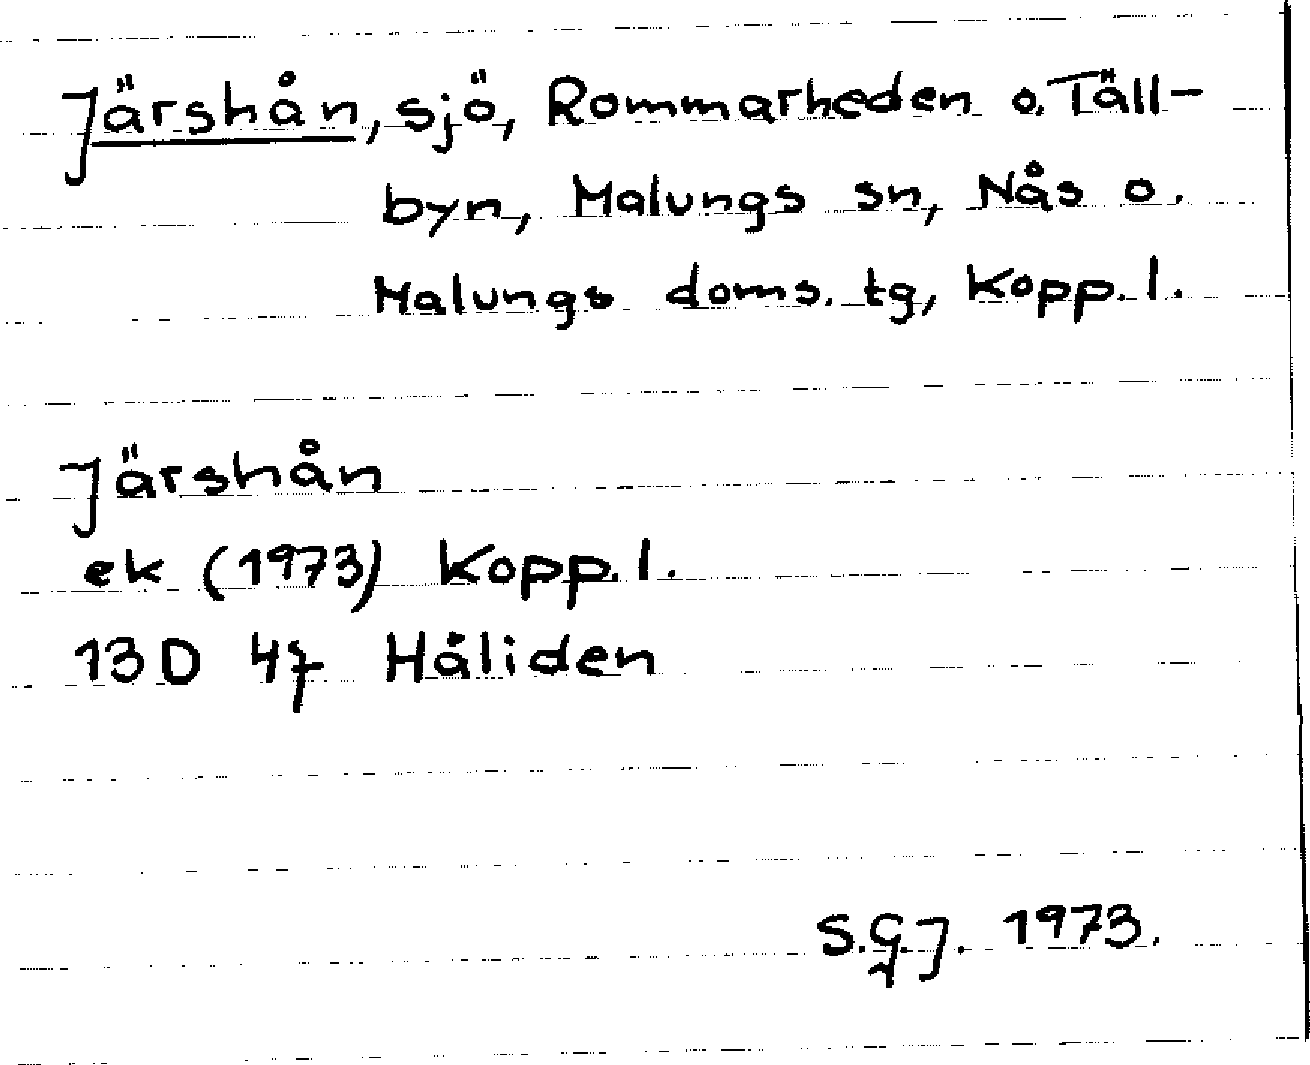 Järshån, sjö, Rommarheden o. Täll-
byn, Malungs sn, Nås o.
Malungs doms. tg, Kopp. l.
Järshån
ek (1973) Kopp. l.
13D 4f Håliden
S.G.J. 1973.